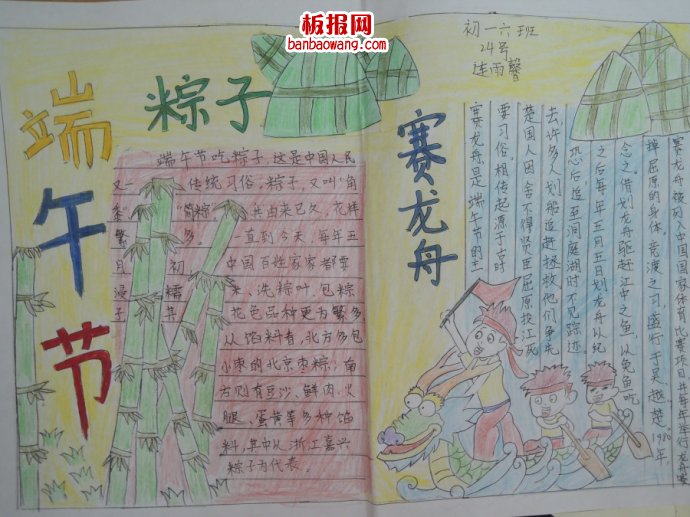 板报网
banbaowang.com
初一六班
24号
连雨馨
端午节
粽子
端午节吃粽子,这是中国人民
又一传统习俗,粽子,又叫"角
黍""筒粽"。其由来已久,花样
繁多。直到今天,每年五
月初,中国百姓家家都要
浸糯米、洗粽叶、包粽
子,其花色品种更为繁多
从馅料看,北方多包
小枣的北京枣粽;南
方则有豆沙、鲜肉、火
腿、蛋黄等多种馅
料,其中以浙江嘉兴
粽子为代表。
赛龙舟
赛龙舟,是端午节的主
要习俗。相传起源于古时
楚国人因舍不得贤臣屈原投江死
去,许多人划船追赶拯救。他们争先
恐后,追至洞庭湖时不见踪迹。
之后每年五月五日划龙舟以纪
念之。借划龙舟驱赶江中之鱼,以免鱼吃
掉屈原的身体。竞渡之习,盛行于吴、越、楚。1980年,
赛龙舟被列入中国国家体育比赛项目,并每年举行龙舟赛